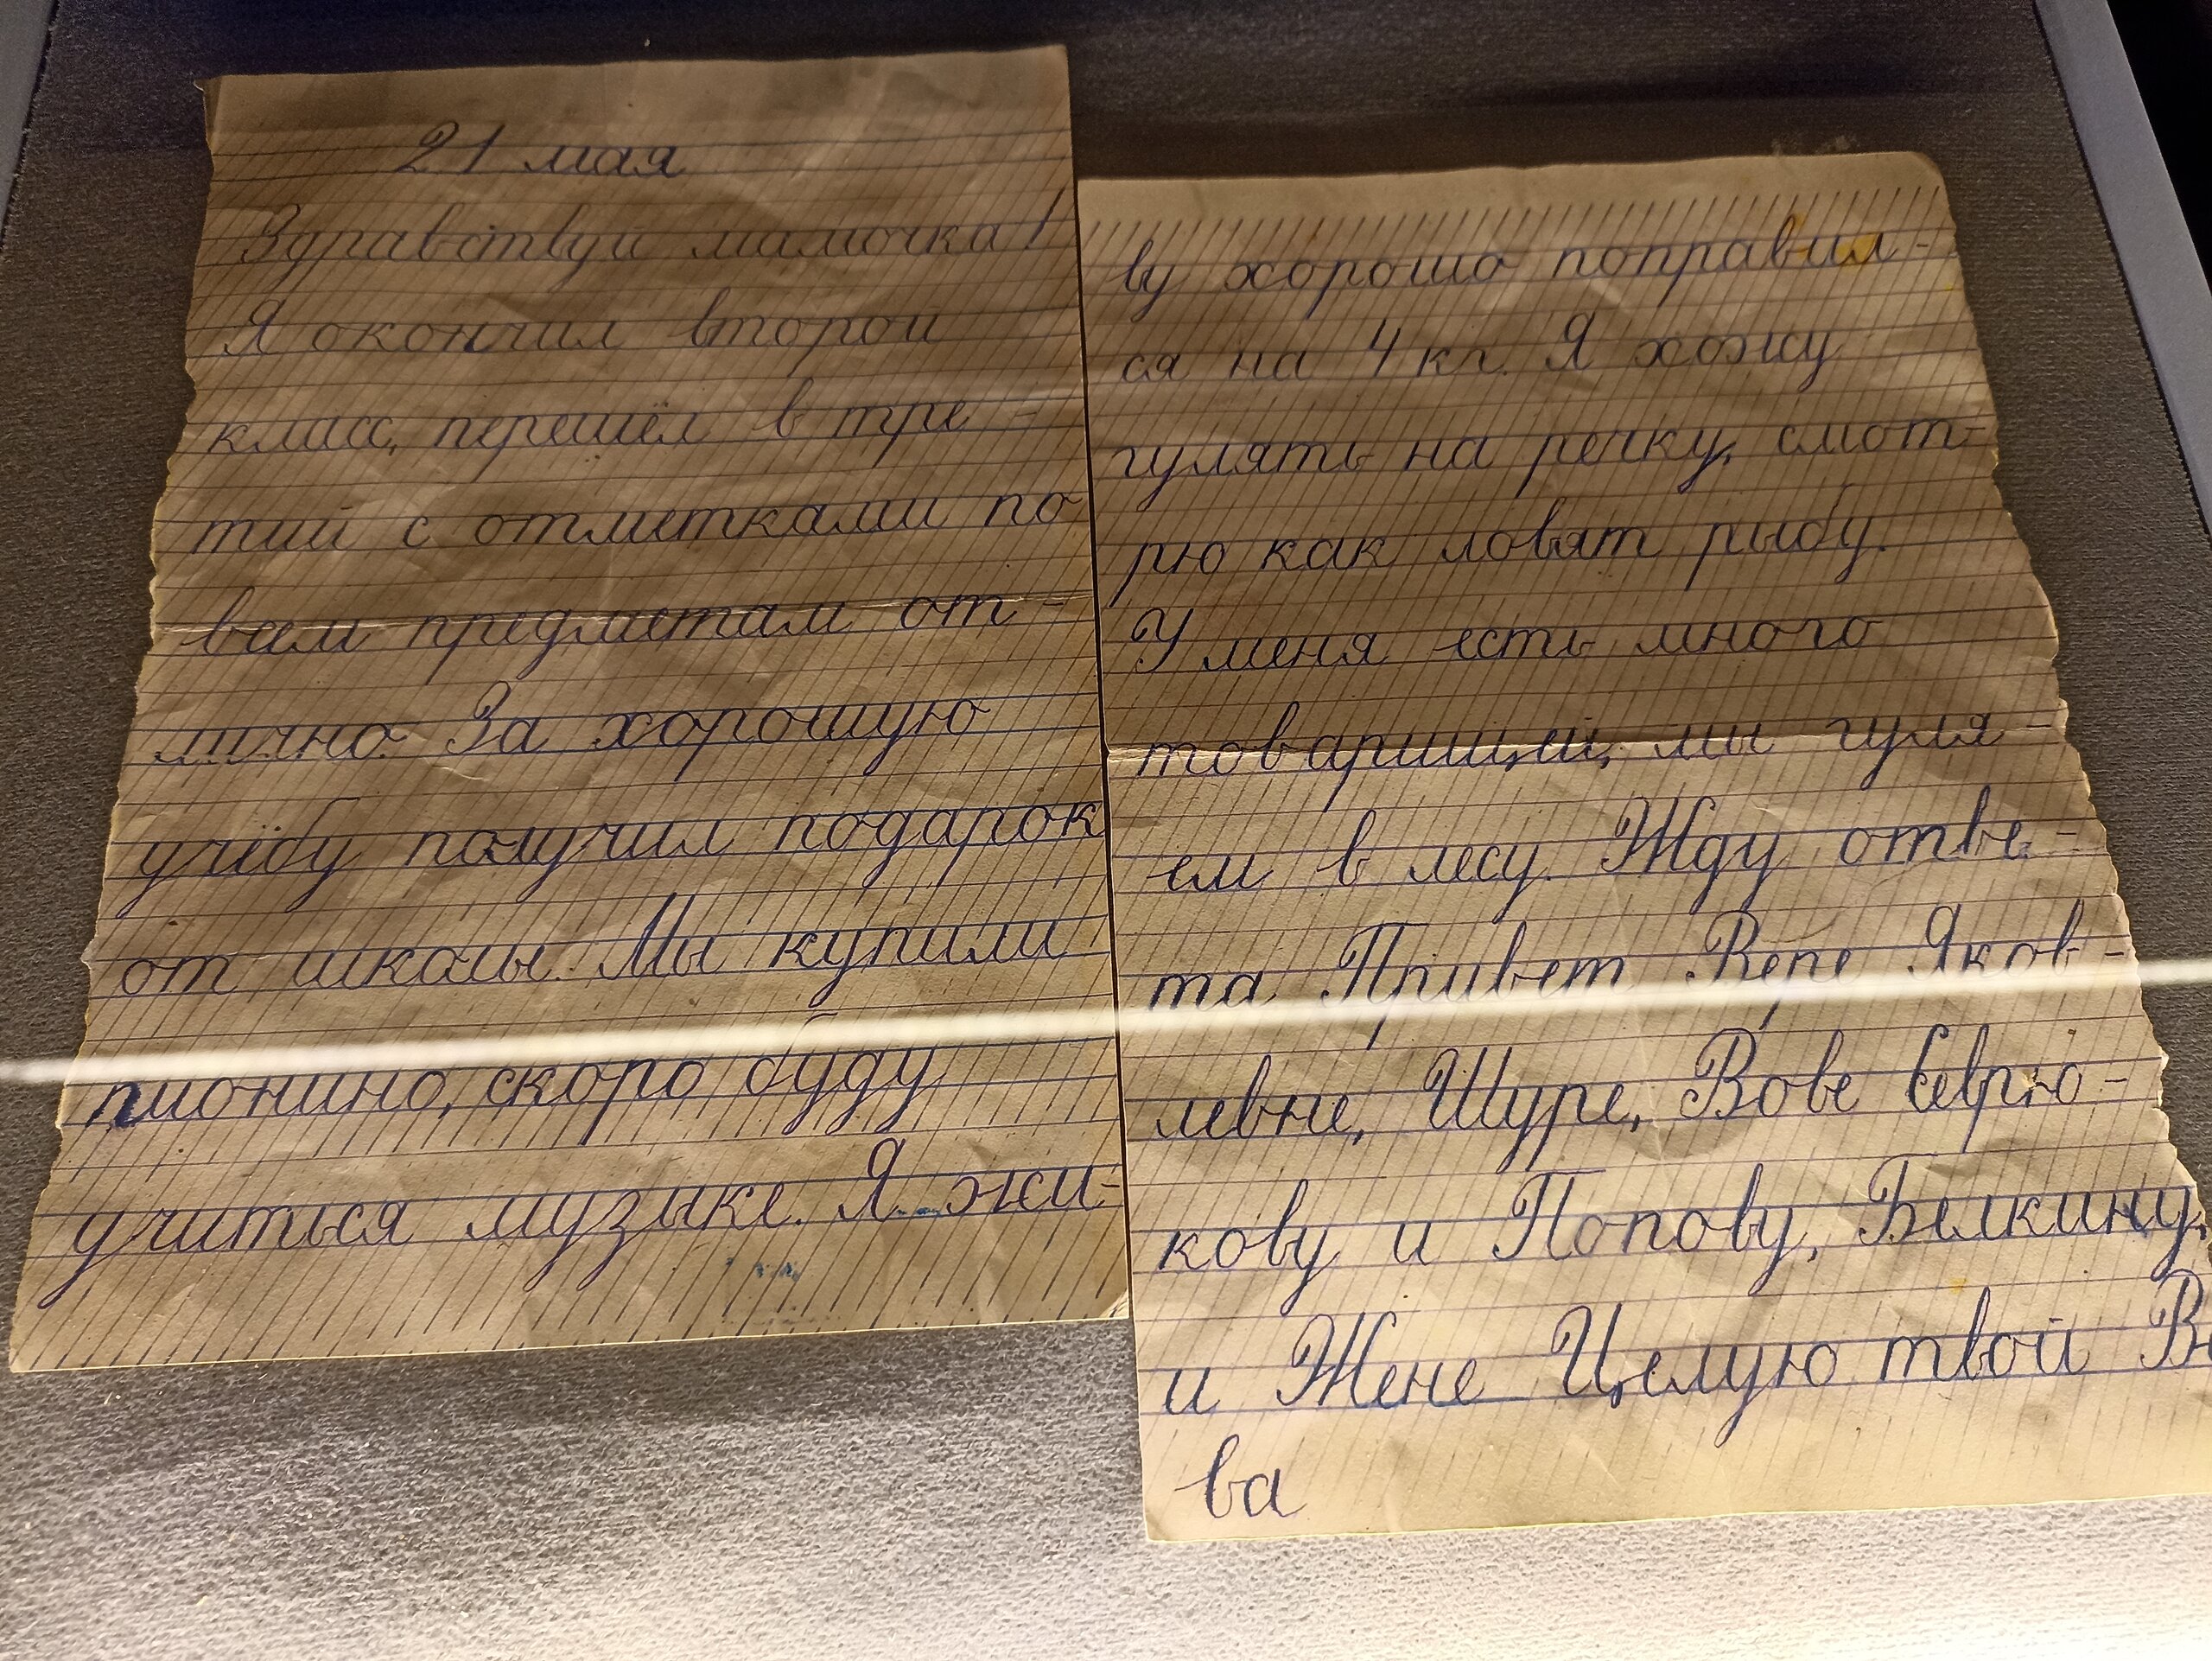 21 мая
Здравствуй мамочка!
Я окончил второй
класс, перешёл в тре-
тий с отметками по
всем предметам от-
лично. За хорошую
учёбу получил подарок
от школы. Мы купили
пионино, скоро буду
учиться музыке. Я жи-
ву хорошо поправил-
ся на 4 кг. Я хожу
гулять на речку, смот-
рю как ловят рыбу.
У меня есть много
товарищей, мы гуля-
ем в лесу. Жду отве-
та Привет Вере Яков-
левне, Шуре, Вове Севрю-
кову и Попову, Белкину,
и Жене Целую твой Во
ва